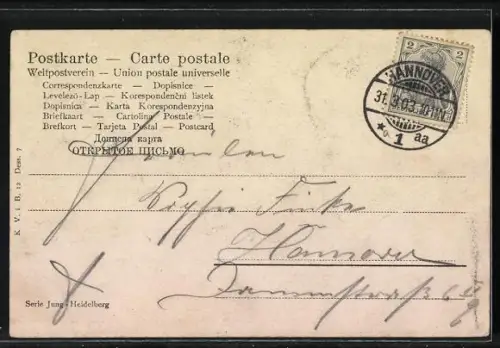 Postkarte — Carte postale
Weltpostverein — Union postale universelle
Correspondenzkarte — Dopisnice —
Levelező-Lap — Korespondenční listek
Dopisnica — Karta Korespondenzyjna
Briefkaart — Cartolina Postale —
Brefkort — Tarjeta Postal — Postcard
Дописна карта
ОТКРЫТОЕ ПИСЬМО
2 2
HANNOVER
31.3.03.
* 1 aa
Fräulein
Hannover
K. V. i. B. 12 Dess. 7
Serie Jung-Heidelberg